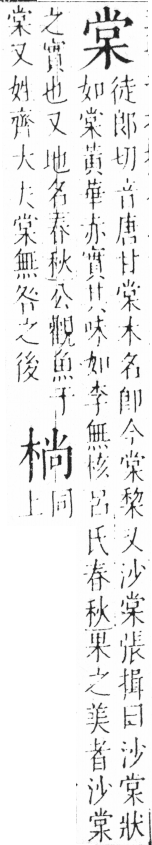 棠徒郎切音唐甘棠木名即今棠棃又沙棠張揖曰沙棠狀
如棠黃華赤實其味如李無核呂氏春秋果之美者沙棠
之實也又地名春秋公觀魚于
棠又姓齊大夫棠無咎之後
㭻同
上